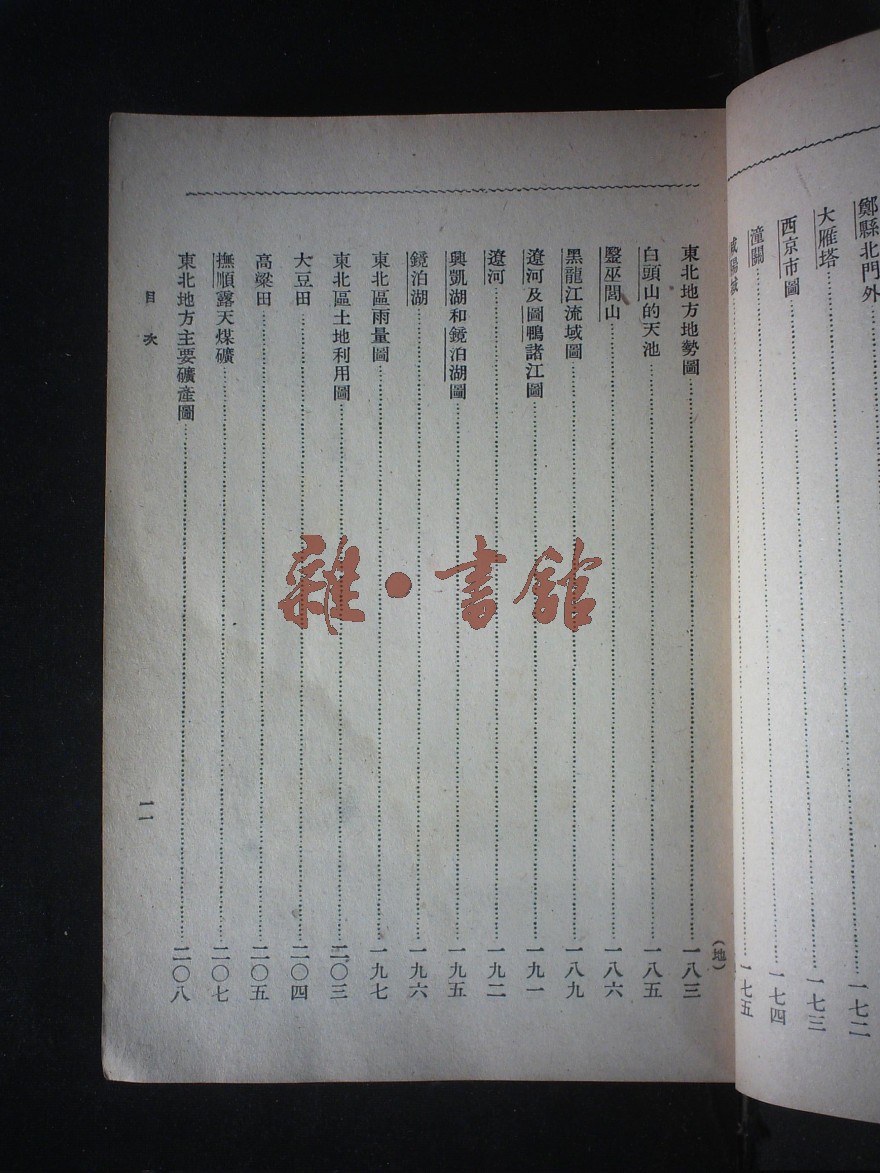 鄭縣北門外……一七二
大雁塔……一七三
西京市圖……一七四
潼關
咸陽坡……一七五
(地)
東北地方地勢圖……一八三
白頭山的天池……一八五
毉巫閭山……一八六
黑龍江流域圖……一八九
遼河及圖鴨諸江圖……一九一
遼河……一九二
興凱湖和鏡泊湖圖……一九五
鏡泊湖……一九六
東北區雨量圖……一九七
東北區土地利用圖……二〇三
大豆田……二〇四
高粱田……二〇五
撫順露天煤礦……二〇七
東北地方主要礦產圖……二〇八
目次
一一
雜·書館